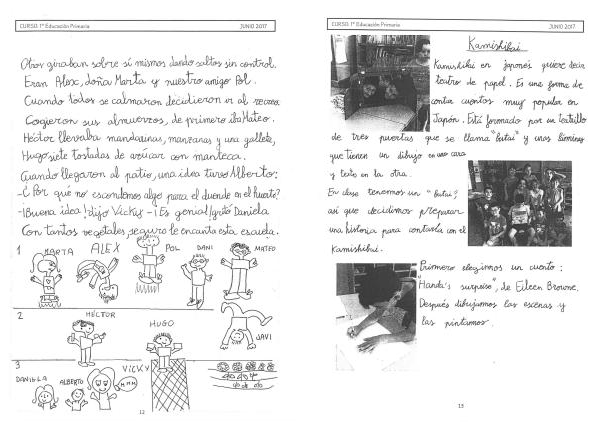 CURSO: 1º Educación Primaria
JUNIO 2017
Otros giraban sobre sí mismos dando saltos sin control.
Eran Alex, doña Marta y nuestro amigo Pol.
Cuando todos se calmaron decidieron ir al recreo.
Cogieron sus almuerzos, de primero iba Mateo.
Héctor llevaba mandarinas, manzanas y una galleta,
Hugo siete tostadas de azúcar con manteca.
Cuando llegaron al patio, una idea tuvo Alberto:
-¿Por qué no escondemos algo para el duende en el huerto?
-¡Buena idea! dijo Vicky -¡Es genial! gritó Daniela
Con tantos vegetales, seguro le encanta esta escuela.
1
MARTA
ALEX
POL
DANI
MATEO
2
HÉCTOR
HUGO
JAVI
3
DANIELA
ALBERTO
VICKY
12
CURSO: 1º Educación Primaria
JUNIO 2017
Kamishibai
Kamishibai en japonés quiere decir
teatro de papel. Es una forma de
contar cuentos muy popular en
Japón. Está formado por un teatrillo
de tres puertas que se llama "butai" y unas láminas
que tienen un dibujo en una cara
y texto en la otra.
En clase tenemos un "butai",
así que decidimos preparar
una historia para contarla con el
Kamishibai.
Primero elegimos un cuento:
"Handa's surprise", de Eileen Browne.
Después dibujamos las escenas y
las pintamos.
13